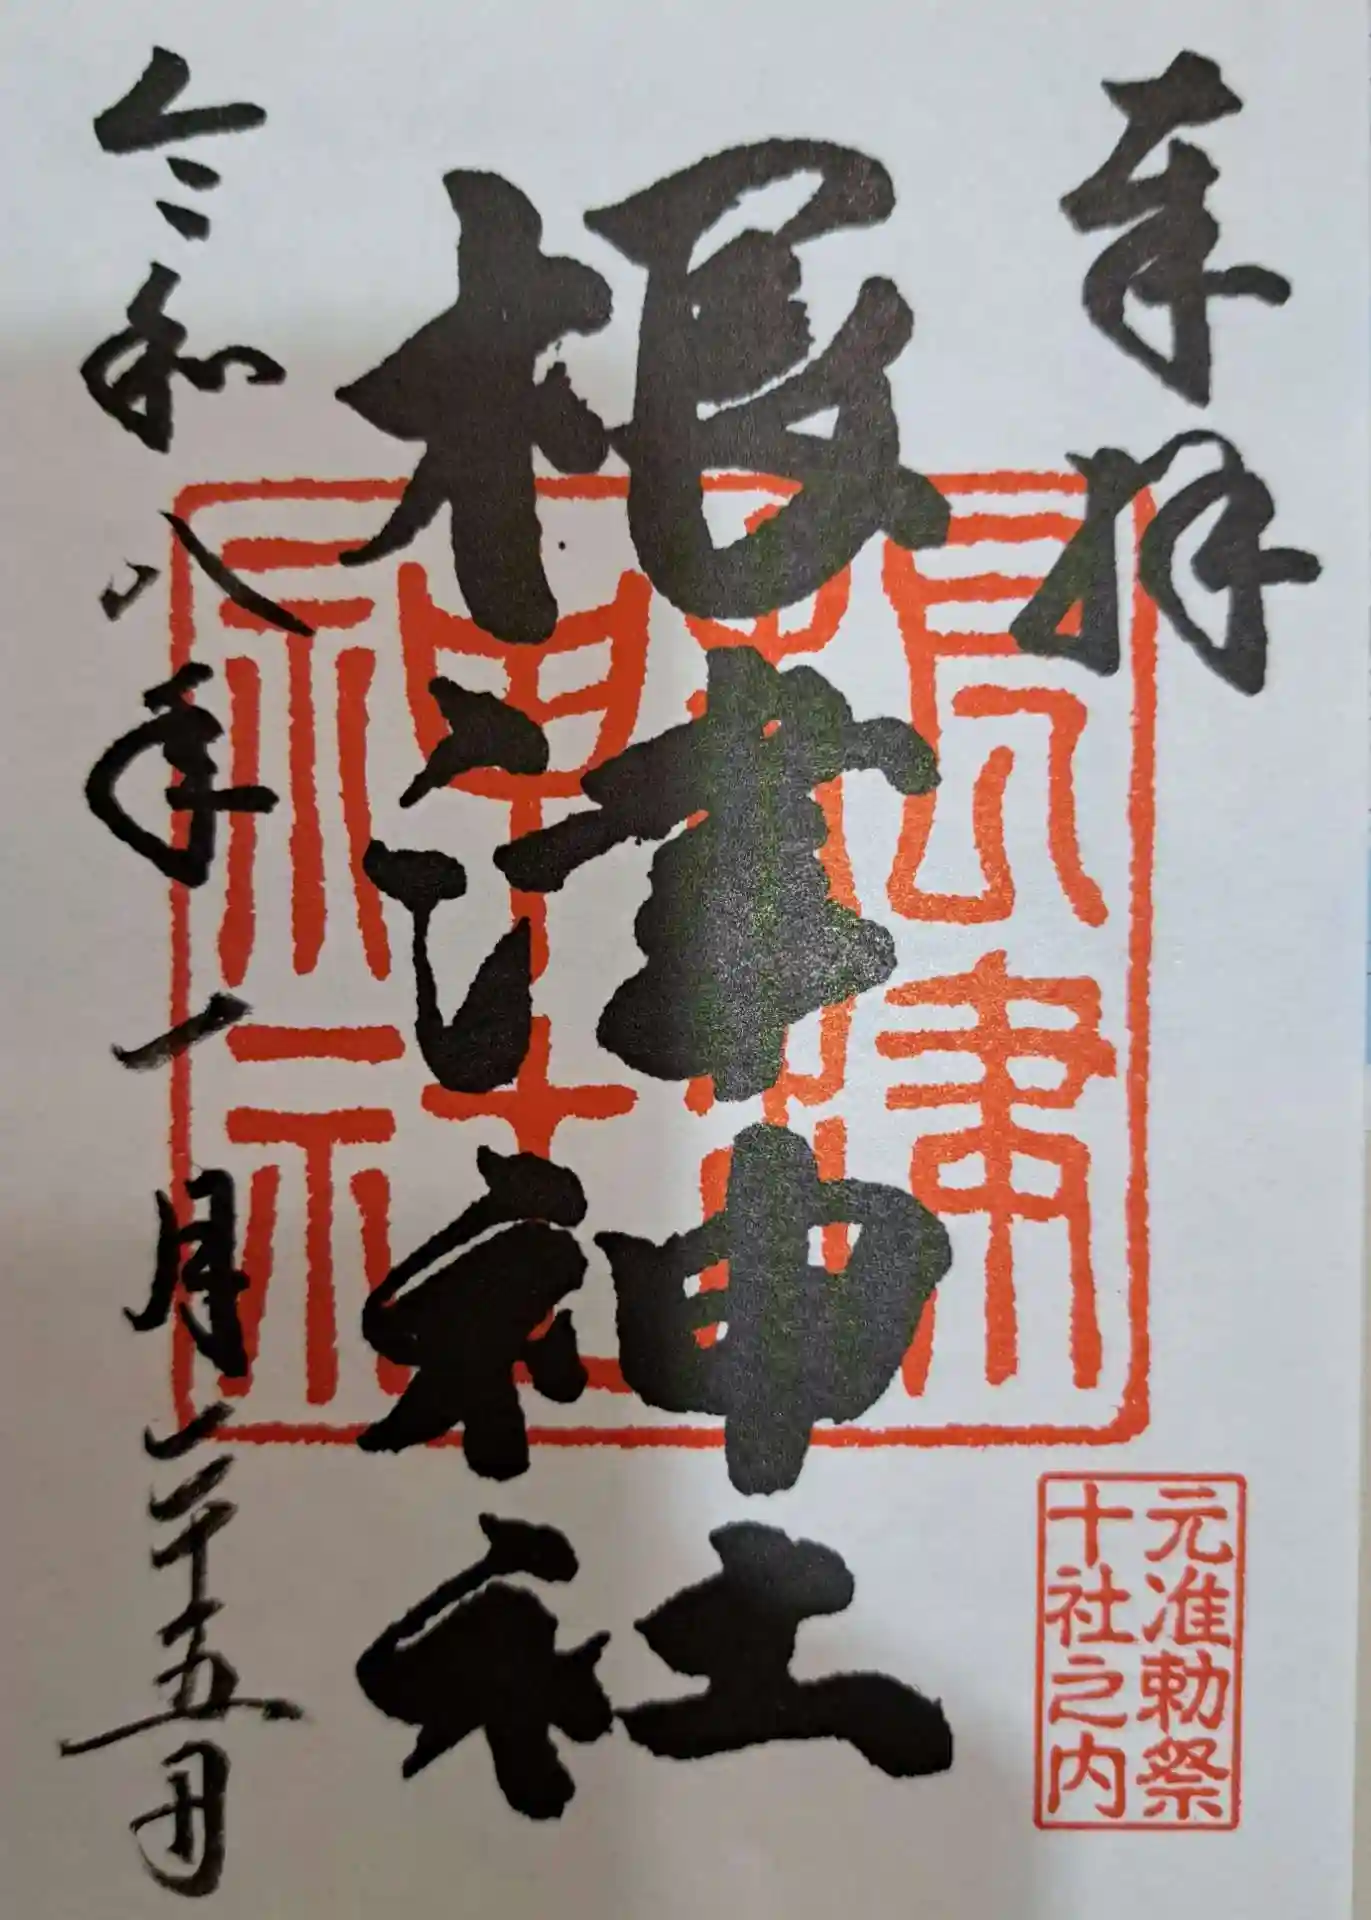 奉拝
根津神社
根津神社
元准勅祭
十社之内
令和八年一月二十五日